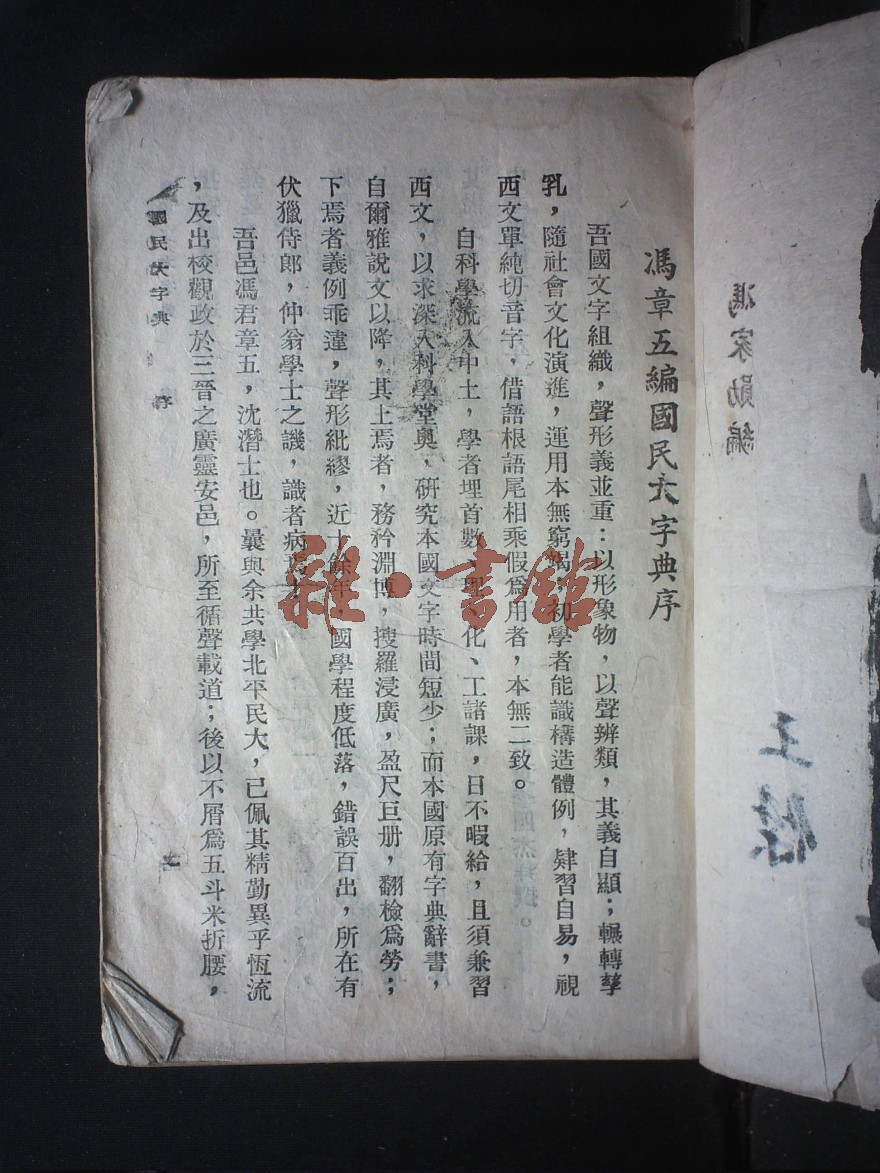 馮章五編國民大字典序
吾國文字組織，聲形義並重：以形象物，以聲辨類，其義自顯；輾轉孳
乳，隨社會文化演進，運用本無窮竭，初學者能識構造體例，肄習自易，視
西文單純切音字，借語根語尾相乘假爲用者，本無二致。
自科學流入中土，學者埋首數、理、化、工諸課，日不暇給，且須兼習
西文，以求深入科學堂奧，研究本國文字時間短少；而本國原有字典辭書，
自爾雅說文以降，其上焉者，務矜淵博，搜羅浸廣，盈尺巨册，翻檢爲勞；
下焉者義例乖違，聲形紕繆，近十餘年，國學程度低落，錯誤百出，所在有
伏獵侍郎，仲翁學士之譏，識者病焉。
吾邑馮君章五，沈潛士也。曩與余共學北平民大，已佩其精勤異乎恆流
，及出校觀政於三晉之廣靈安邑，所至循聲載道；後以不屑爲五斗米折腰，
國民大字典 序
一
馮家勛編
王
雜·書館